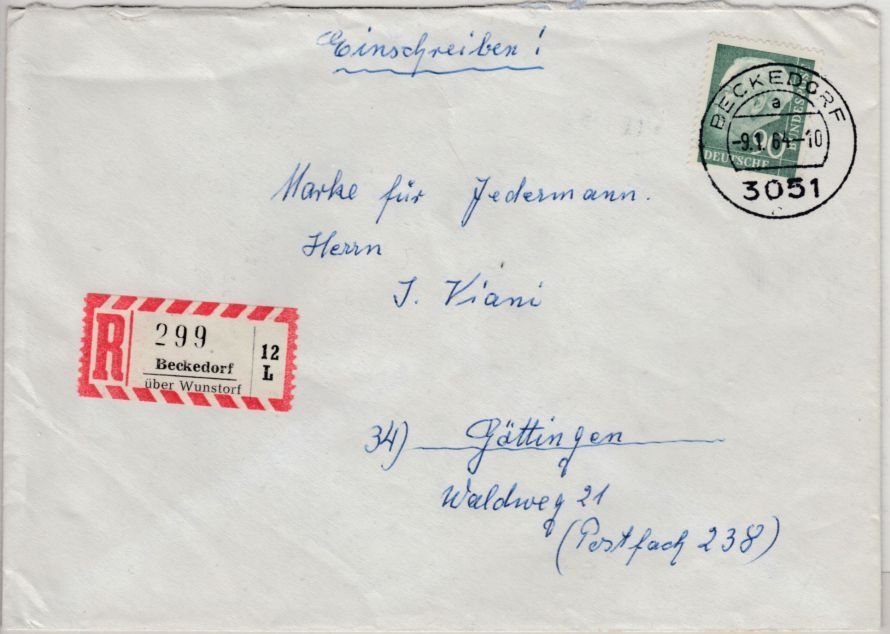 Einschreiben!
BECKEDORF
a
-9.1.64-10
3051
90
DEUTSCHE
BUNDES
Marke für Jedermann.
Herrn
J. Viani
R
299
Beckedorf
über Wunstorf
12
L
34) Göttingen
Waldweg 21
(Postfach 238)